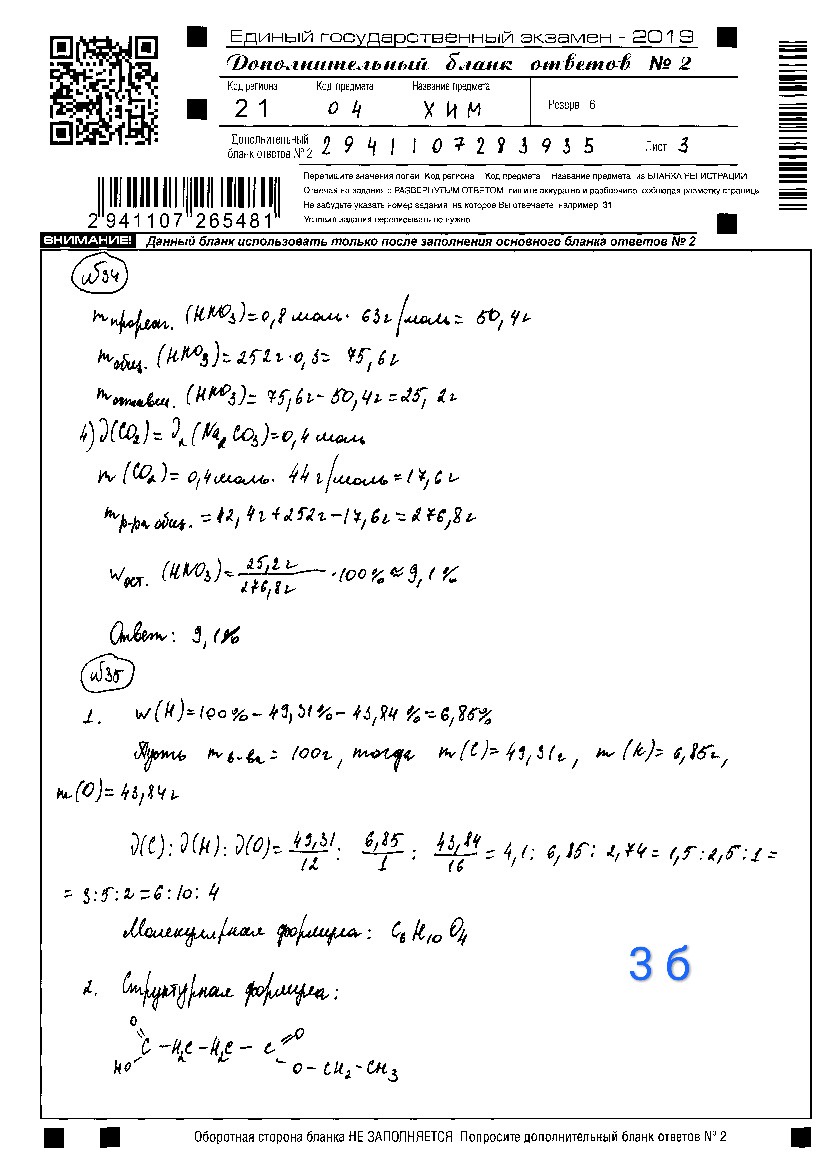 Единый государственный экзамен - 2019
Дополнительный бланк ответов № 2
Код региона Код предмета Название предмета
21 04 ХИМ Резерв 6
Дополнительный бланк ответов № 2 2941107283935 Лист 3
Перепишите значения полей Код региона Код предмета Название предмета из БЛАНКА РЕГИСТРАЦИИ
Отвечая на задания с РАЗВЕРНУТЫМ ОТВЕТОМ пишите аккуратно и разборчиво соблюдая разметку страницы
Не забудьте указать номер задания на которое Вы отвечаете например 31
Условия задания переписывать не нужно
2 941107 265481
ВНИМАНИЕ! Данный бланк использовать только после заполнения основного бланка ответов № 2
№34
m прореаг. (HNO3)=0,8 моль · 63г/моль = 50,4г
m общ. (HNO3)=252г·0,3= 75,6г
m оставш. (HNO3)= 75,6г - 50,4г =25,2г
4) ν(CO2)= ν2 (Na2CO3)=0,4 моль
m (CO2)= 0,4моль · 44 г/моль =17,6г
m р-ра общ. =42,4г+252г-17,6г=276,8г
w ост. (HNO3)= 25,2г / 276,8г ·100% ≈ 9,1%
Ответ: 9,1%
№35
1. w(H)=100%-49,31%-43,84%=6,85%
Пусть m в-ва = 100г, тогда m(C)=49,31г, m(H)= 6,85г,
m(O)=43,84г
ν(C):ν(H):ν(O)= 49,31/12 : 6,85/1 : 43,84/16 = 4,1: 6,85: 2,74= 1,5:2,5:1=
= 3:5:2=6:10:4
Молекулярная формула: C6H10O4
3 б
2. Структурная формула:
O O
C -H2C-H2C- C
HO O-CH2-CH3
Оборотная сторона бланка НЕ ЗАПОЛНЯЕТСЯ Попросите дополнительный бланк ответов № 2